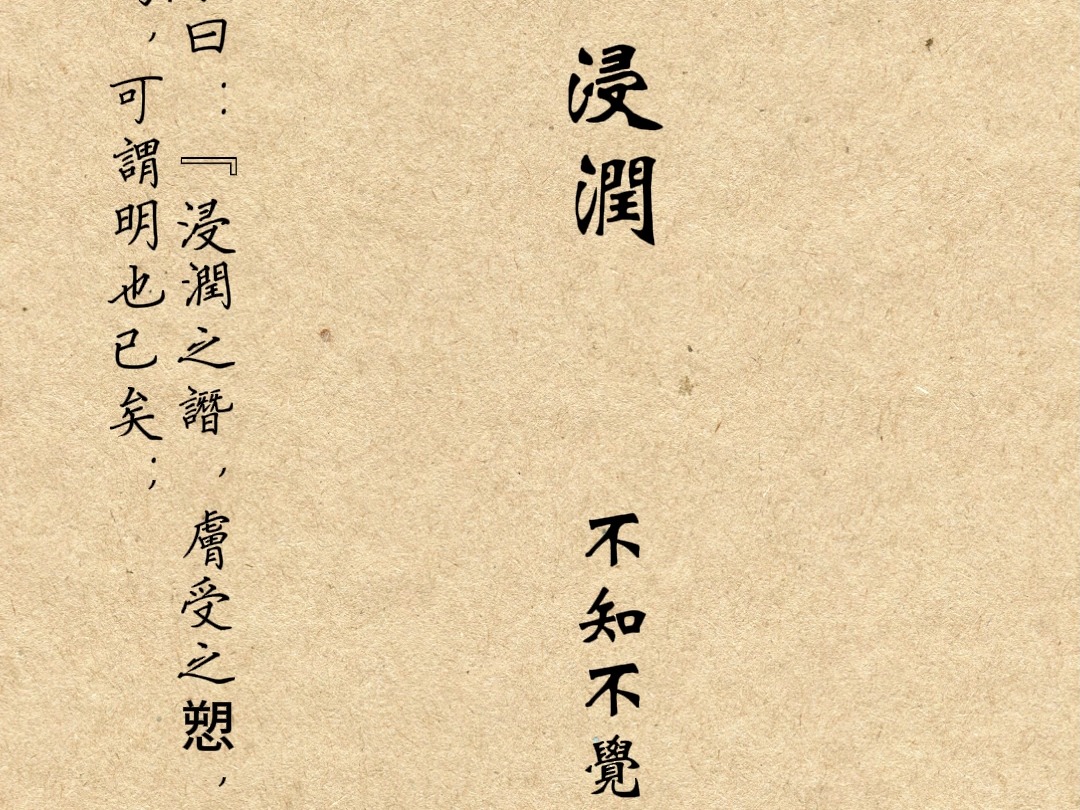 浸潤
不知不覺
曰：『浸潤之譖，膚受之愬，
，可謂明也已矣；